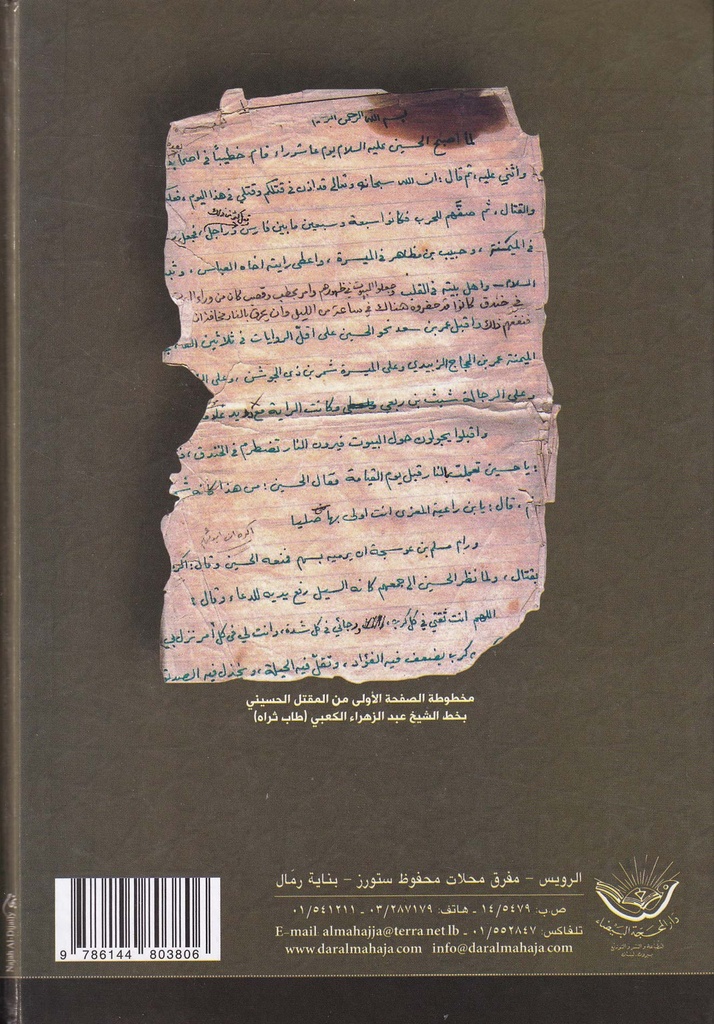 بسم الله الرحمن الر
لما اصبح الحسين عليه السلام يوم عاشوراء قام خطيباً في اصحابه
واثنى عليه، ثم قال: ان الله سبحانه وتعالى قد اذن في قتلكم وقتلي في هذا اليوم،
والقتال، ثم صفهم للحرب فكانوا سبعة وسبعين ما بين فارس وراجل، فجعل
في الميمنة، وحبيب بن مظاهر في الميسرة، واعطى رايته اخاه العباس،
السلام - واهل بيته في القلب وجعلوا البيوت في ظهورهم وامر بحطب وقصب كان من وراء
في خندق كانوا قد حفروه هناك في ساعة من الليل وان يحرق بالنار مخافة ان
فنفعهم ذلك واقبل عمر بن سعد نحو الحسين على اقل الروايات في ثلاثين
الميمنة عمر بن الحجاج الزبيدي وعلى الميسرة شمر بن ذي الجوشن، وعلى
وعلى الرجالة شبث بن ربعي وكانت الراية مع
واقبلوا يجولون حول البيوت فيرون النار تضطرم في الخندق،
: يا حسين تعجلت بالنار قبل يوم القيامة فقال الحسين: من هذا كانه
، قال: يا بن راعية المعزى انت اولى بها صليا
ورام مسلم بن عوسجة ان يرميه بسهم فمنعه الحسين وقال: اكره
بقتال، ولما نظر الحسين الى جمعهم كانه السيل رفع يديه للدعاء وقال:
اللهم انت ثقتي في كل كرب، ورجائي في كل شدة، وانت لي في كل أمر نزل بي
، كرب يضعف فيه الفؤاد، وتقل فيه الحيلة، ويخذل فيه
مخطوطة الصفحة الأولى من المقتل الحسيني
بخط الشيخ عبد الزهراء الكعبي (طاب ثراه)
الرويس - مفرق محلات محفوظ ستورز - بناية رمال
ص.ب: ١٤/٥٤٧٩ - هاتف: ٠٣/٢٨٧١٧٩ - ٠١/٥٤١٢١١
تلفاكس: ٠١/٥٥٢٨٤٧ - E-mail almahajja@terra.net.lb
www.daralmahaja.com info@daralmahaja.com
دار المحجة البيضاء
للطباعة والنشر والتوزيع
بيروت - لبنان
9 786144 803806
Najah Al-Dijaily